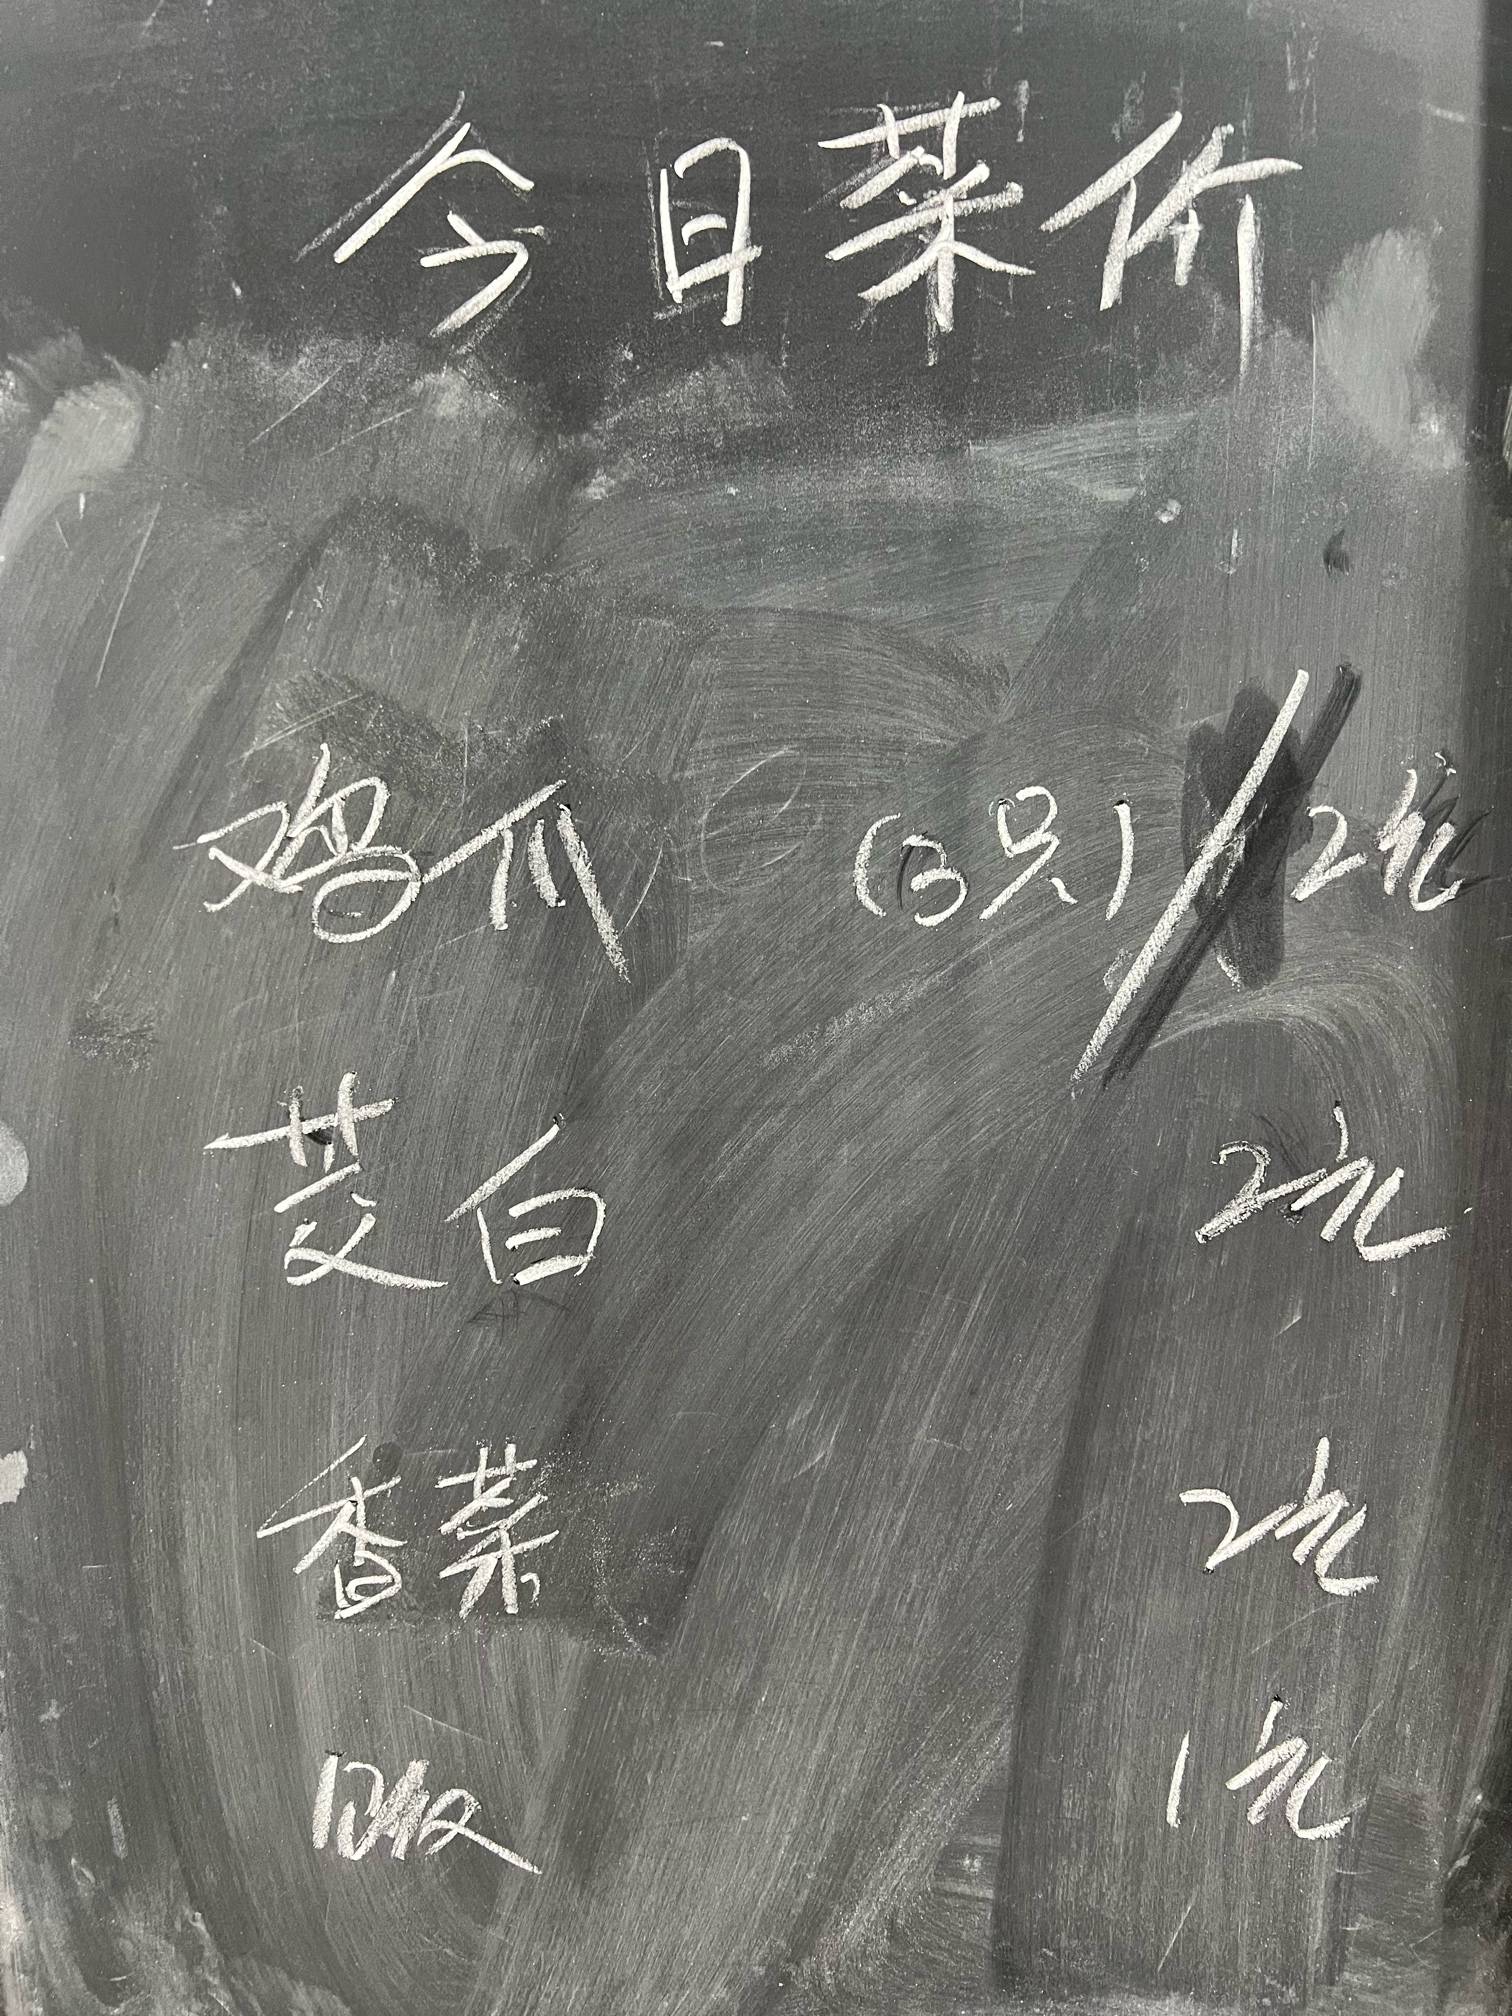 今日菜价
鸡爪 (3只) / 2元
茭白 2元
香菜 2元
1元